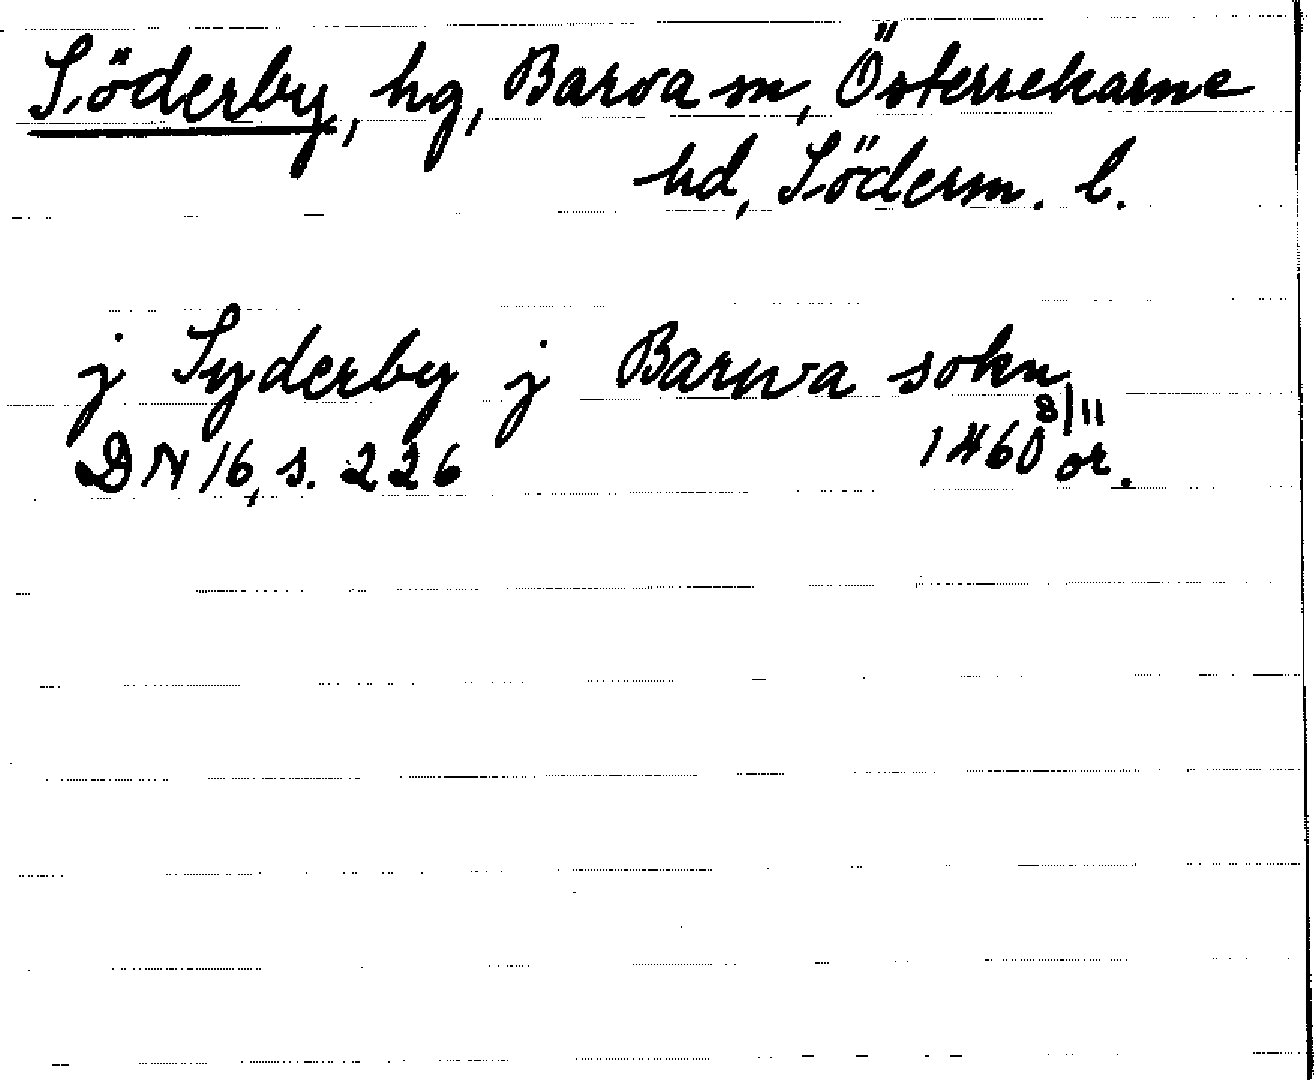 Söderby, hg, Barva sn, Österrekarne
hd, Söderm. l.
j Syderby j Barwa sokn
DN 16, s. 226 1460 8/11 or.